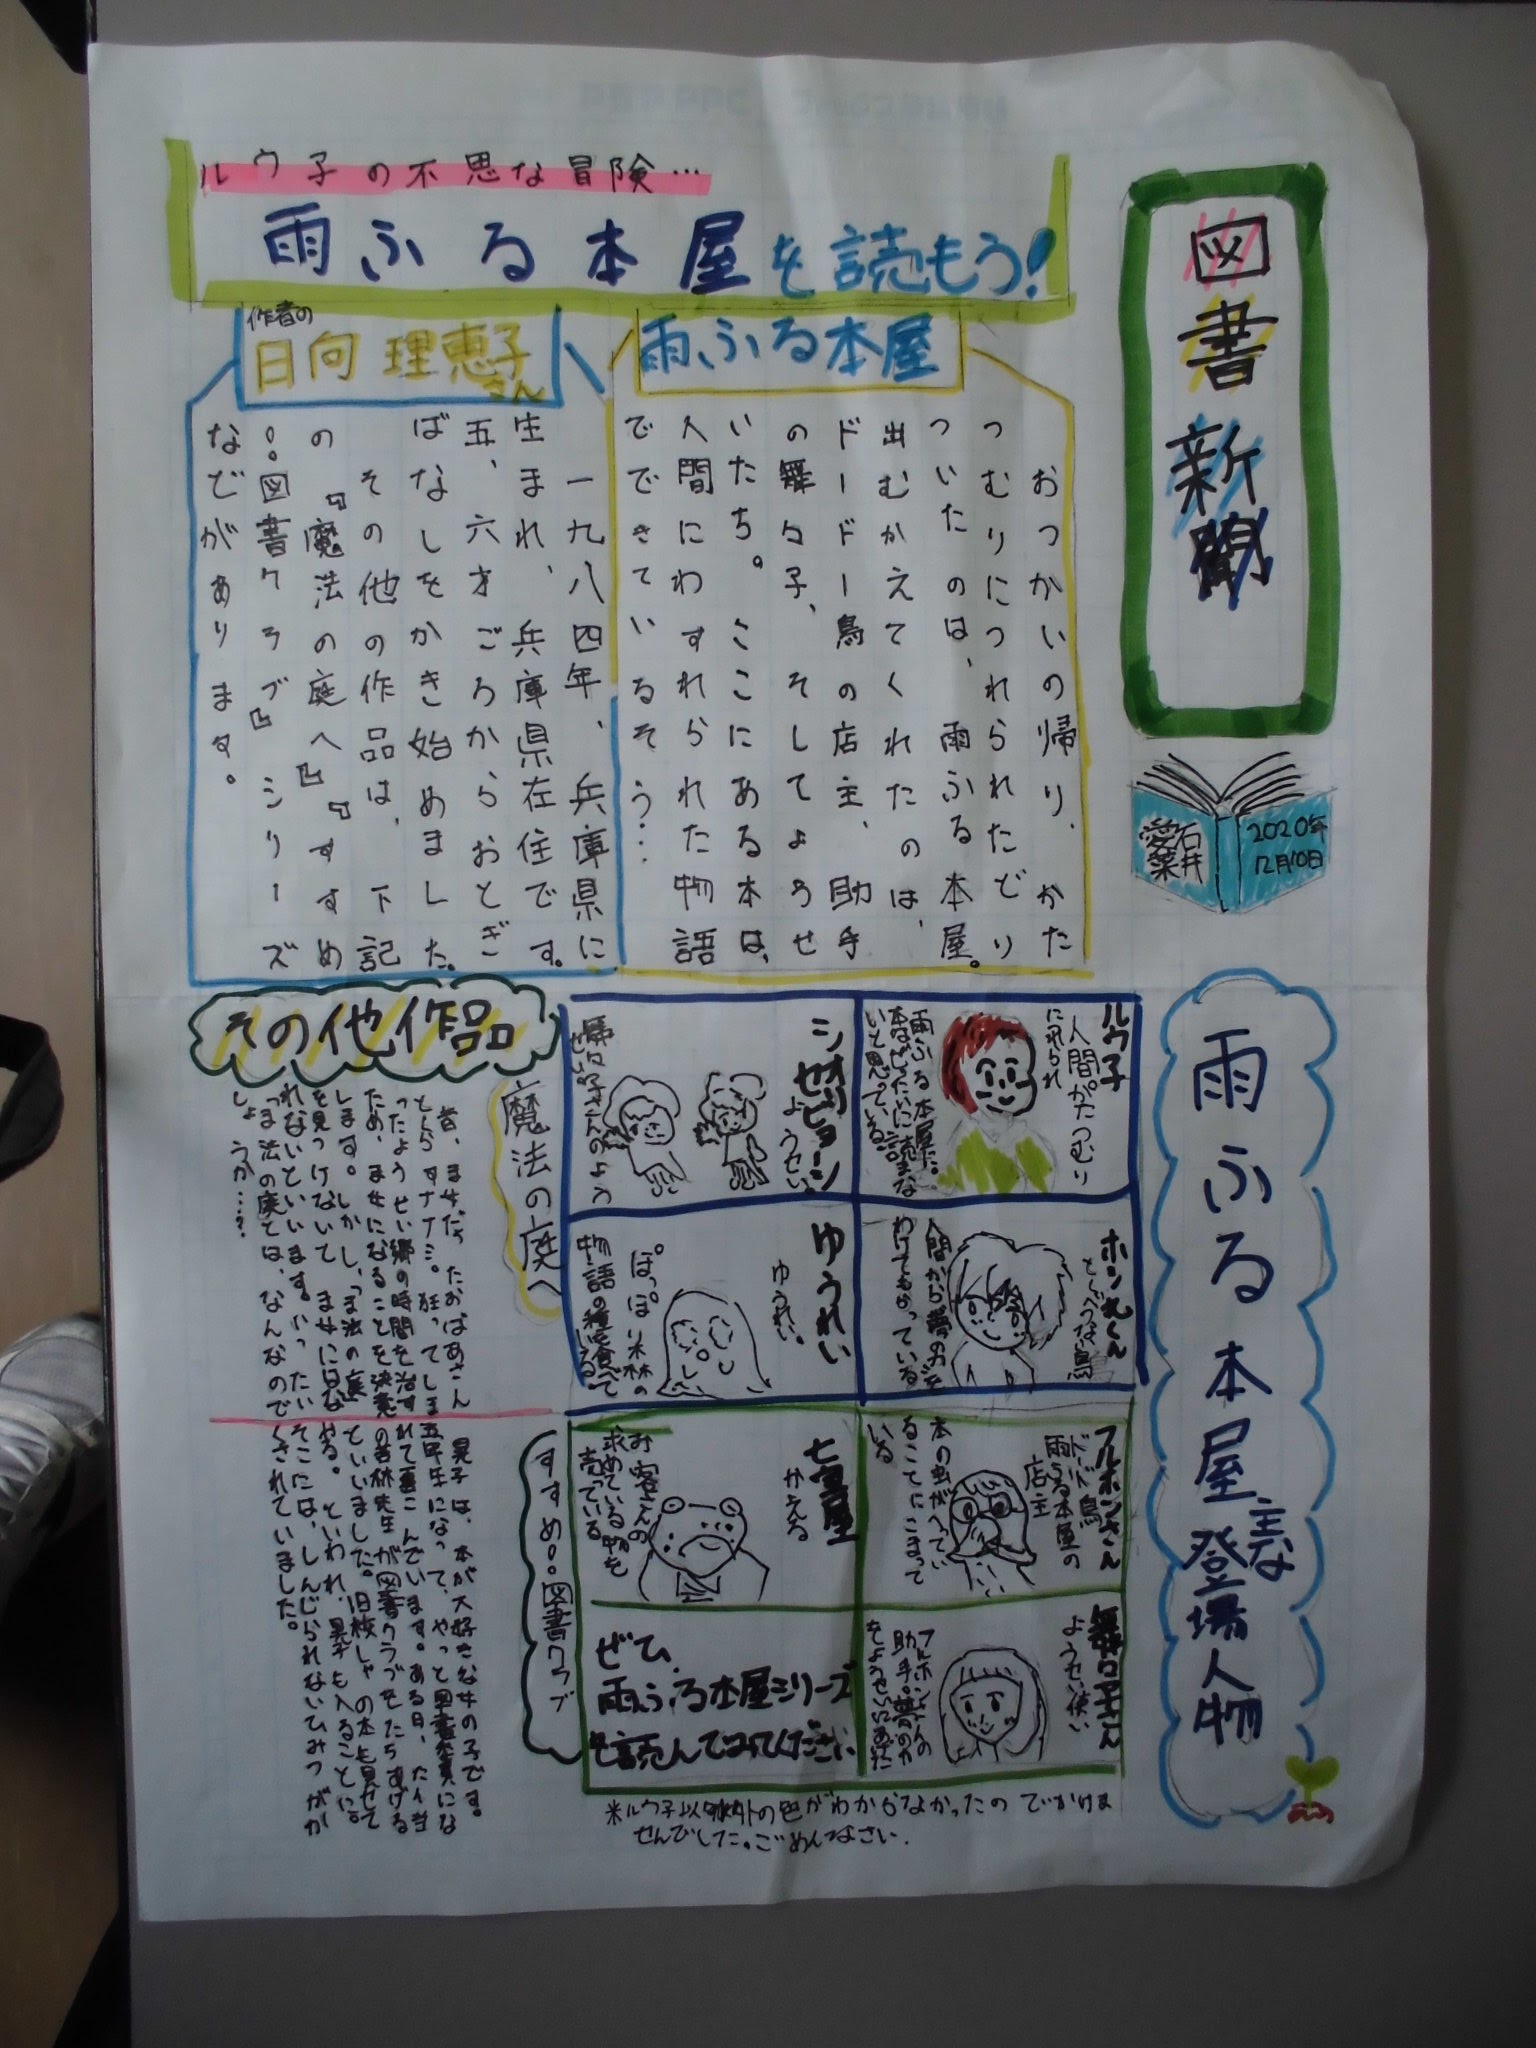 図書新聞
2020年
12月10日
石井
愛菜
ルウ子の不思な冒険…
雨ふる本屋を読もう!
雨ふる本屋
おつかいの帰り、かた
つむりにつれられたどり
ついたのは、雨ふる本屋。
出むかえてくれたのは、
ドードー鳥の店主、助手
の舞々子、そしてようせ
いたち。ここにある本は、
人間にわすれられた物語
でできているそう…
作者の
日向理恵子さん
一九八四年、兵庫県に
生まれ、兵庫県在住です。
五、六才ごろからおとぎ
ばなしをかき始めました。
その他の作品は、下記
の『魔法の庭へ』『すすめ
!!図書クラブ』シリーズ
などがあります。
雨ふる本屋主な登場人物
ルウ子
人間がかたつむり
にれられ
雨ふる本屋に。
本はぜったいに読まな
いと思っている。
シオリとセビョーシ
ようせい。
舞々子さんのよう
せい。
ホシ丸くん
とくべつな鳥
人間から夢の力を
わけてもらっている
ゆうれい
ゆうれい。
ぽっぽり森の
物語の種を食べて
いる。
フルホンさん
ドードー鳥
雨ふる本屋の
店主
本の虫がへってい
ることにこまって
いる
七宝屋
かえる
お客さんの
求めている物を
売っている
舞々子さん
ようせい使い
フルホンさんの
助手。夢の力
をようせいにあたえ
ぜひ、
雨ふる本屋シリーズ
を読んでみてください
※ルウ子以外の色がわからなかったのでかけま
せんでした。ごめんなさい.
その他作品
魔法の庭へ
昔、ま女だったおばあさん
とくらすナナミ。狂ってしま
ったようせい郷の時間を治す
ため、ま女になることを決意
します。しかし、「ま法の庭」
を見つけないで ま女に
れないといいます。いったい
「ま法の庭」とは、なんなので
しょうか…?
すすめ!!図書クラブ
晃子は、本が大好きな女の子です。
五年生になって、やっと図書委員にな
れて喜こんでいます。ある日、たん当
の若林先生が図書クラブをたちあげる
といいました。旧校しゃの本も見せて
やる。といわれ、晃子も入ることに。
そこには、しんじられないひみつがか
くされていました。